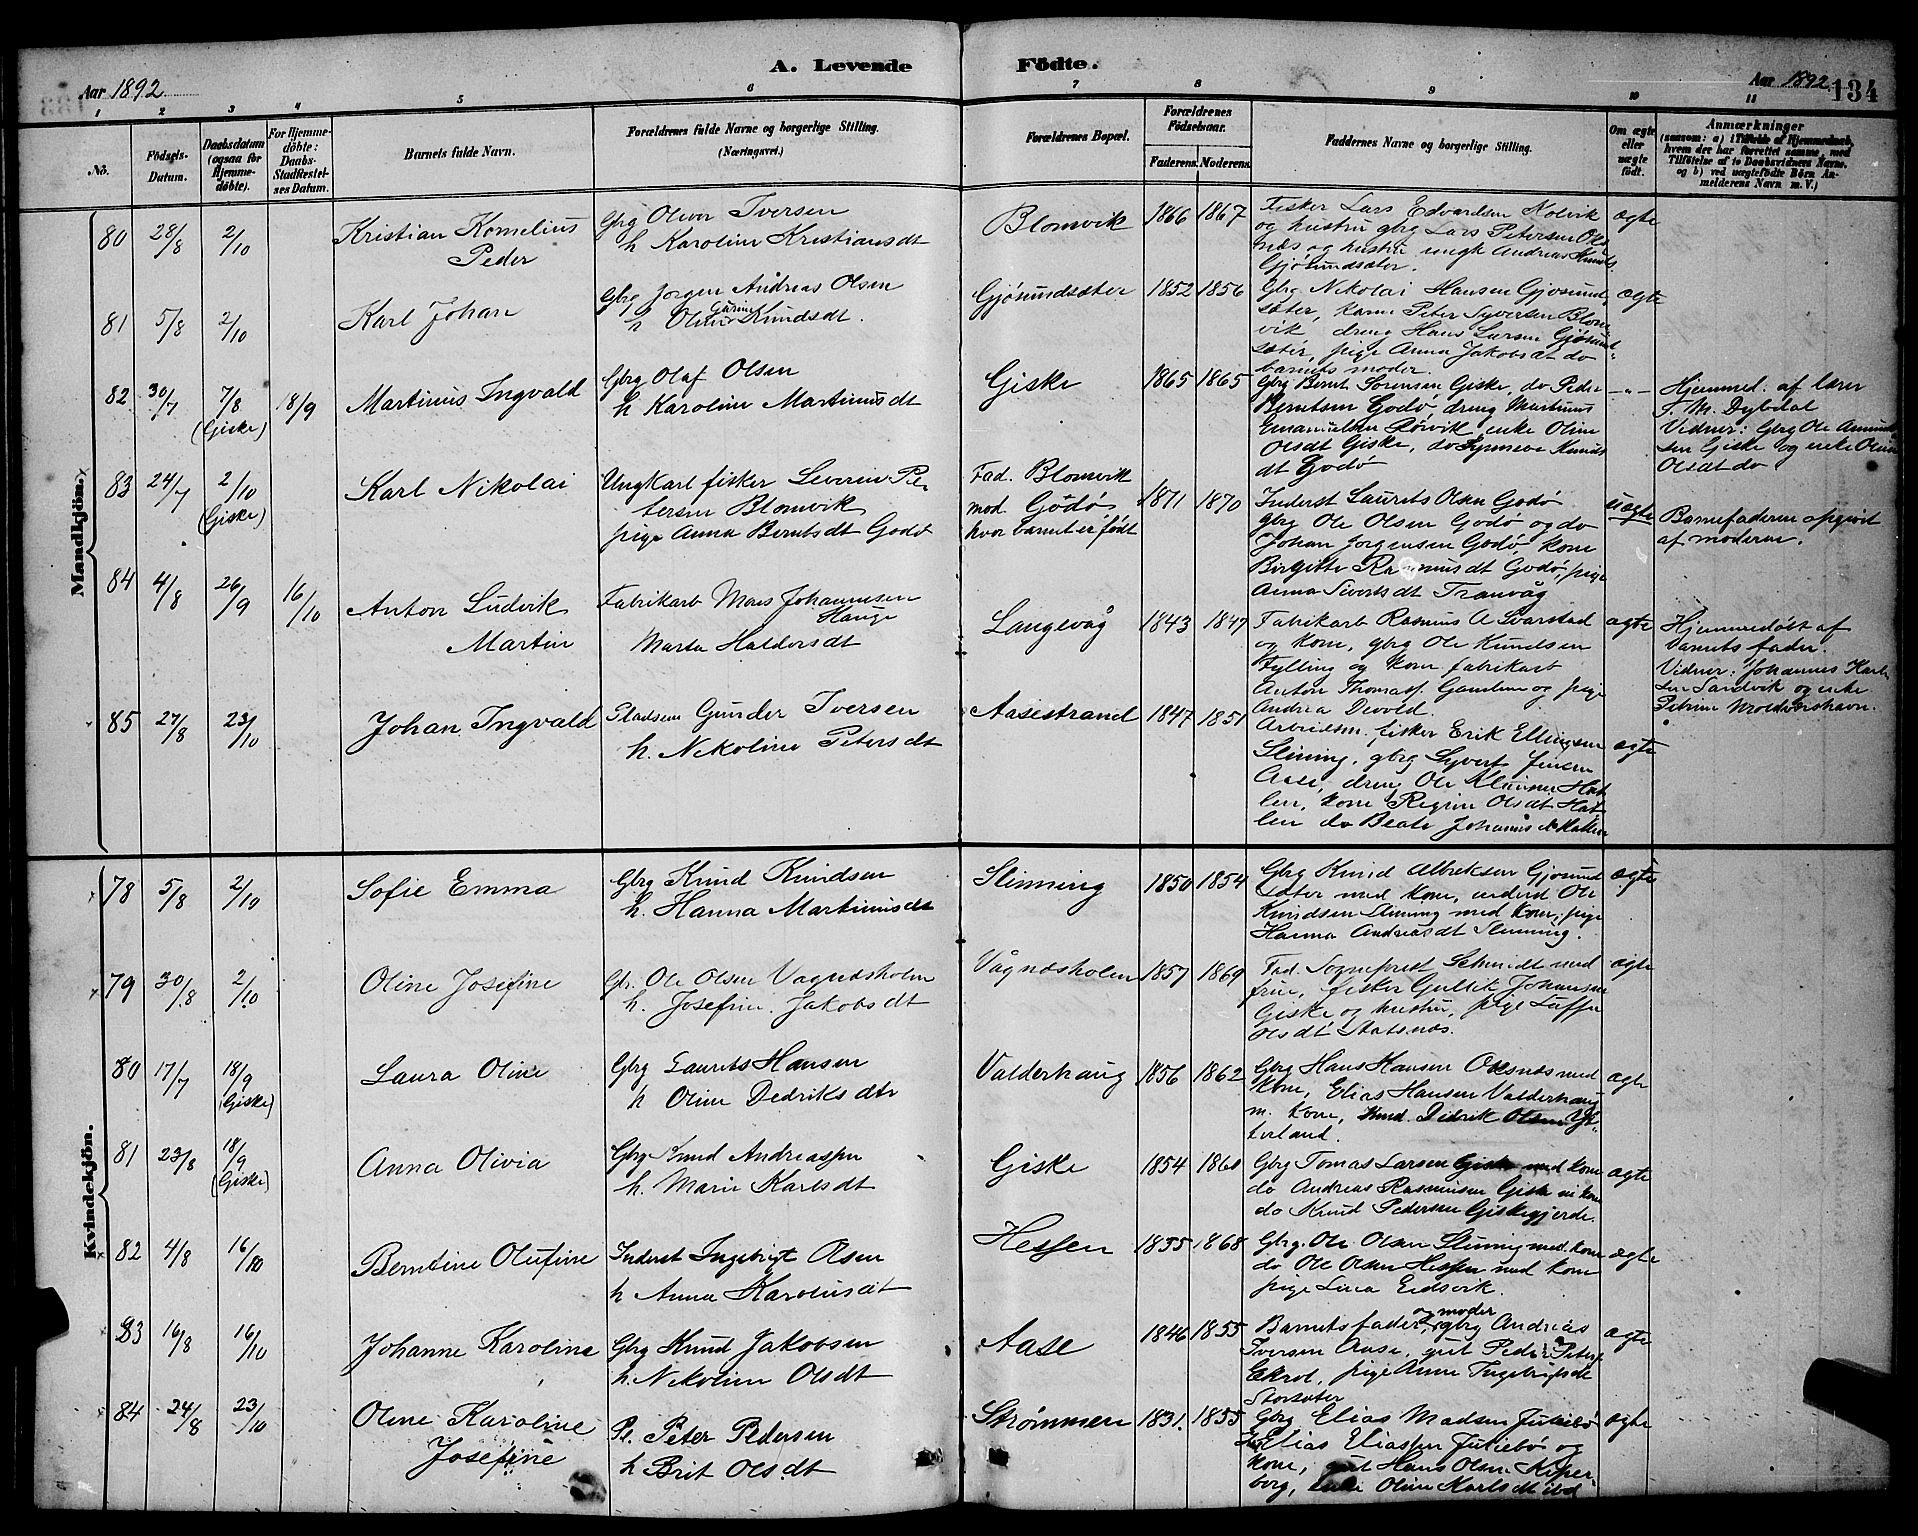 A. Levende Födte.
Aar 1892
Aar 1892
134
1 2 3 4 5 6 7 8 9 10 11
No.
Födsels-Datum.
Daabsdatum (ogsaa for Hjemmedöbte).
For Hjemmedöbte: Daabs-Stadfæstelses Datum.
Barnets fulde Navn.
Forældrenes fulde Navne og borgerlige Stilling.
(Næringsvei.)
Forældrenes Bopæl.
Forældrenes Födselsaar.
Faderens. Moderens.
Faddernes Navne og borgerlige Stilling.
Om ægte eller uægte födt.
Anmærkninger
(saasom: a) i Tilfælde af Hjemmedaab, hvem der har forrettet samme, med Tilföielse af to Daabsvidners Navne. og b) ved uægtefödte Börn Anmelderens Navn m. V.)
Mandkjön.
80 28/8 2/10 Kristian Kornelius
Peder
Gbrg Oliver Iversen
h Karoline Kristiansdt
Blomvik 1866 1867
Fisker Lars Edvardsen Nolvik
og hustru gbrg Lars Petersen Oks
næs og hustru ungk Andreas Knuts.
Gjøsundsæter.
ægte
81 5/8 2/10 Karl Johan
Gbrg Jørgen Andreas Olsen
h Oline Gurine Knudsdt.
Gjøsundsæter 1852 1856
Gbrg Nikolai Hansen Gjøsund
sæter, Peter Syversen Blom
vik dreng Hans Larsen Gjøsund
sæter, pige Anna Jakobsdt do
barnets moder.
ægte
82 30/7 7/8 (Giske) 18/9 Martinus Ingvald
Gbrg Olaf Olsen
h Karoline Martinusdt
Giske 1865 1865
Gbrg Bernt Sørensen Giske, do Peder
Berntsen Godø, dreng Martinus
Emanuelsen Rørvik, enke Oline
Olsdt Giske, do Synneve Knuds
dt Godø
-"-
Hjemmed. af lærer
T. M. Dybdal
Vidner: Gbrg Ole Amund
sen Giske og enke Oline
Olsdt do
83 24/7 2/10 (Giske) Karl Nikolai
Ungkarl fisker Severin Pe
tersen Blomvik
pige Anna Berntsdt Godø
Fad. Blomvik
mod. Godø
hvor barnet er født
1871 1870
Inderst Laurits Olsen Godø
gbrg Ole Olsen Godø og do
Johan Jørgensen Godø, kone
Birgitte Rasmusdt Godø, pige
Anna Sivertsdt Tranvåg
uægte
Barnefaderen opgivet
af moderen.
84 4/8 26/9 16/10 Anton Ludvik
Martin
Fabrikarb Mons Johannesen
Hauge
Marta Haldorsdt
Langevåg 1843 1847
Fabrikarb Rasmus A Svarstad
og kone, gbrg Ole Knudsen
Fylling og kone fabrikarb
Anton Thomasf. Gamlem og pige
Andrea Devold.
ægte
Hjemmedøbt af
barnets fader.
Vidner: Johannes Karl
sen Sandvik og enke
Petrine
85 27/8 23/10 Johan Ingvald
Pladsem Gunder Iversen
h. Nikoline Petersdt
Aasestrand 1847 1851
Arbeidsm. fisker Erik Ellingsen
Slinning, gbrg Syvert Finsen
Aase, dreng Ole Klausen Hat
len, kone Regine Olsdt Hat
len do Beate Johannesdt Hatlen
ægte
Kvindekjön.
78 5/8 2/10 Sofie Emma
Gbrg Knud Knudsen
h. Hanna Martinusdt
Slinning 1850 1854
Gbrg Knud Albriksen Gjøsund
sæter med kone, inderst Ole
Knudsen Slinning med kone, pige
Hanna Andreasdt Slinning.
ægte
79 30/8 2/10 Oline Josefine
Gbr. Ole Olsen Vagnesholm
h. Josefine Jakobsdt
Vågnæsholen 1857 1869
Fad. Sogneprest Schmidt med
frue, fisker Gullik Johansen
Giske og hustru, pige
Olsdt Statsnæs.
ægte
80 17/7 18/9 (Giske) Laura Oline
Gbrg Laurits Hansen
h Oline Dedriksdtr
Valderhaug 1856 1862
Gbrg Hans Hansen Oksnæs med
kone, Elias Hansen Valderhaug
m. kone, Knud Didrik Olsen Yt
terland.
ægte
81 23/8 18/9 (Giske) Anna Olivia
Gbrg Knud Andreassen
h. Marie Karlsdt
Giske 1854 1860
Gbrg Tomas Larsen Giske med kone
do Andreas Rasmusen Giske m kone
do Knud Pedersen Giskegjerde.
ægte
82 4/8 16/10 Berntine Olufine
Inderst Ingebrigt Olsen
h Anna Karolusdt
Hessen 1855 1868
Gbrg. Ole Olsen Slinning med kone
do Ole Olsen Hessen med kone
pige Lina Eidsvik.
ægte
83 16/8 16/10 Johanne Karoline
Gbrg Knud Jakobsen
h. Nikoline Olsdt
Aase 1846 1855
Barnets fader og moder, gbrg Andreas
Iversen Aase, gut Peder Petersf
Ekrol, pige Anne Ingebrigtsdt
Storsæter
ægte
84 24/8 23/10 Oline Karoline
Josefine
Pl. Peter Pedersen
h Brit Olsdt
Strømmen 1831. 1855
Gbrg Elias Madsen Juliebø
Elias Eliassen Juliebø og
kone, gut Hans Olsen Kiper
berg, enke Oline Karlsdt ibd
ægte